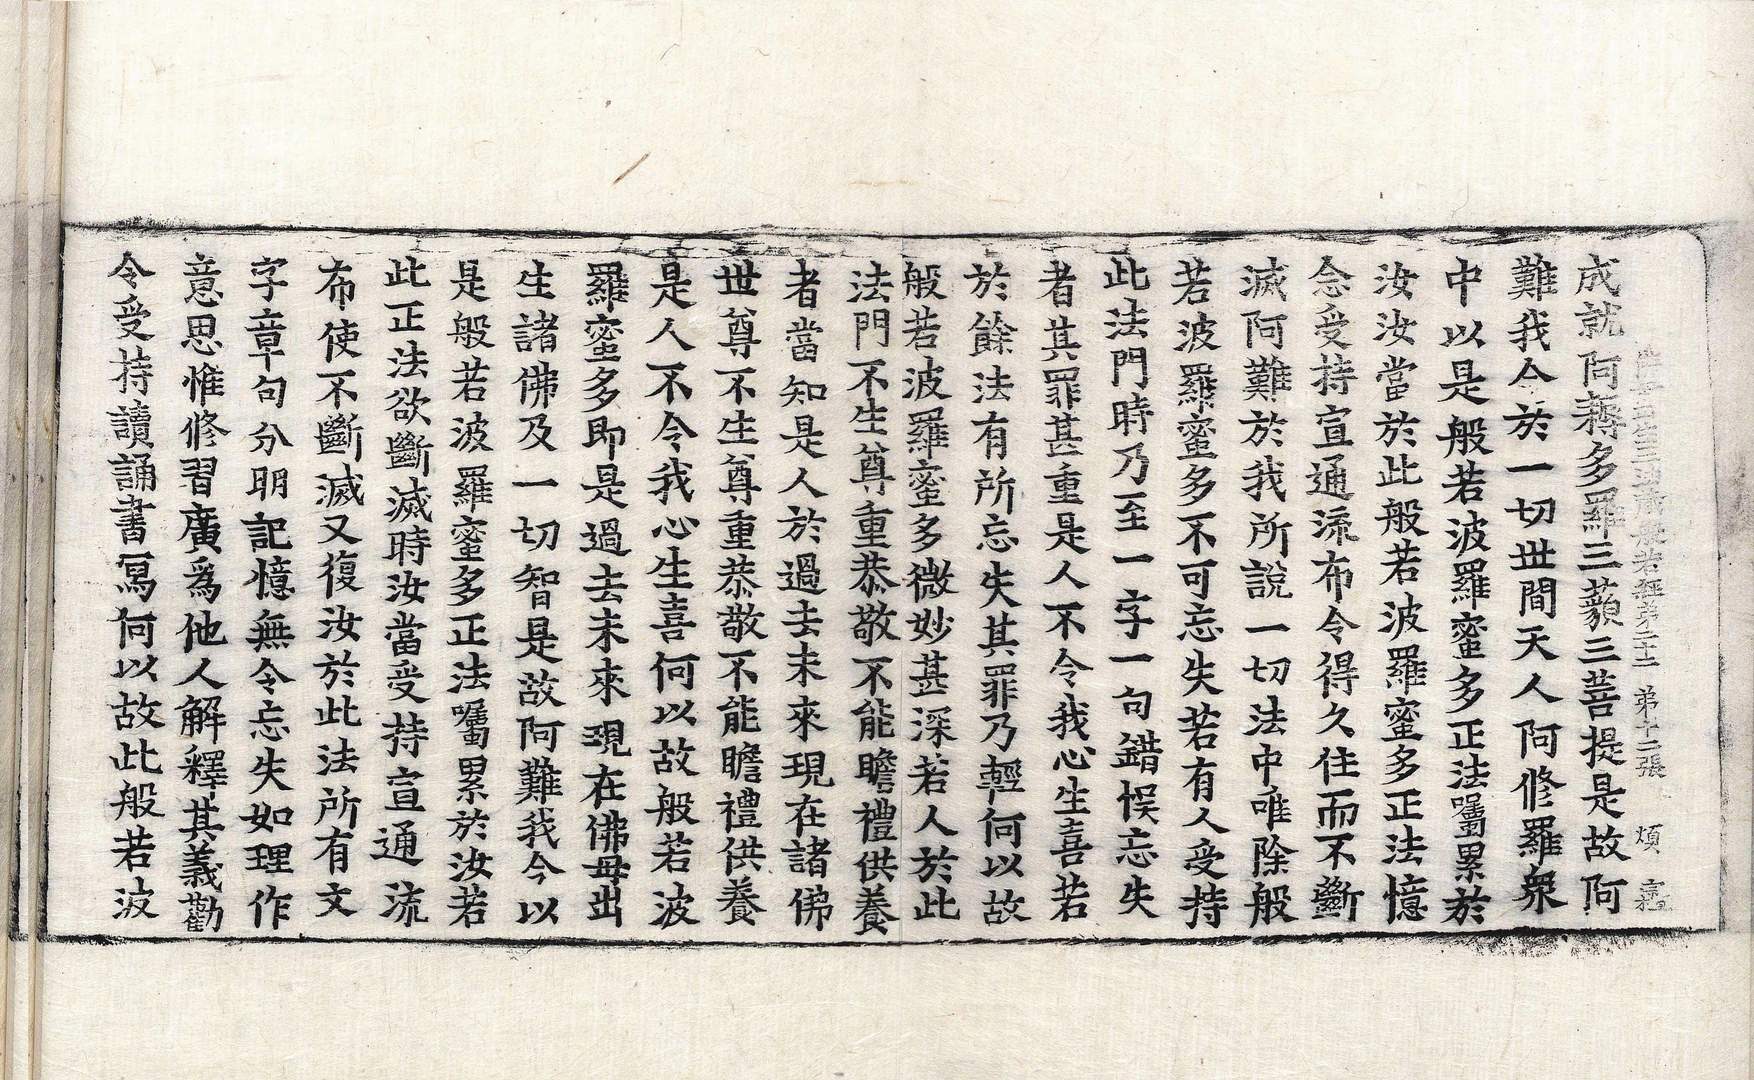 般若經弟二十二 弟十二張 煩
成就阿耨多羅三藐三菩提是故阿
難我今於一切世間天人阿修羅衆
中以是般若波羅蜜多正法囑累於
汝汝當於此般若波羅蜜多正法憶
念受持宣通流布令得久住而不斷
滅阿難於我所說一切法中唯除般
若波羅蜜多不可忘失若有人受持
此法門時乃至一字一句錯悮忘失
者其罪甚重是人不令我心生喜若
於餘法有所忘失其罪乃輕何以故
般若波羅蜜多微妙甚深若人於此
法門不生尊重恭敬不能瞻禮供養
者當知是人於過去未來現在諸佛
世尊不生尊重恭敬不能瞻禮供養
是人不令我心生喜何以故般若波
羅蜜多即是過去未來現在佛母出
生諸佛及一切智是故阿難我今以
是般若波羅蜜多正法囑累於汝若
此正法欲斷滅時汝當受持宣通流
布使不斷滅又復汝於此法所有文
字章句分明記憶無令忘失如理作
意思惟修習廣爲他人解釋其義勸
令受持讀誦書寫何以故此般若波